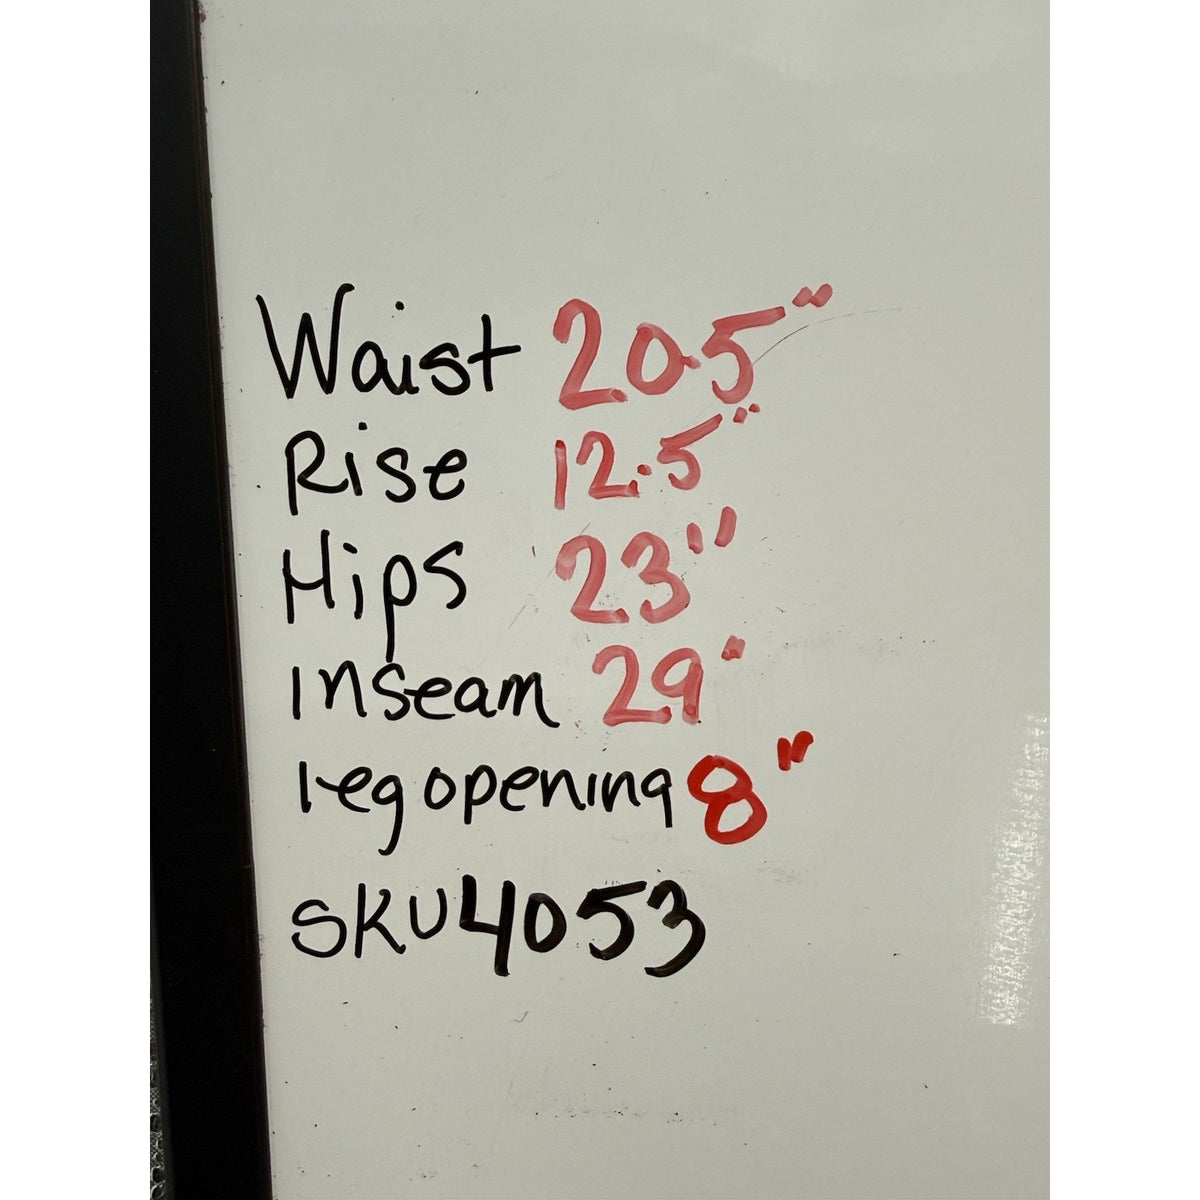 Waist 20.5"
Rise 12.5"
Hips 23"
Inseam 29"
leg opening 8"
SKU 4053